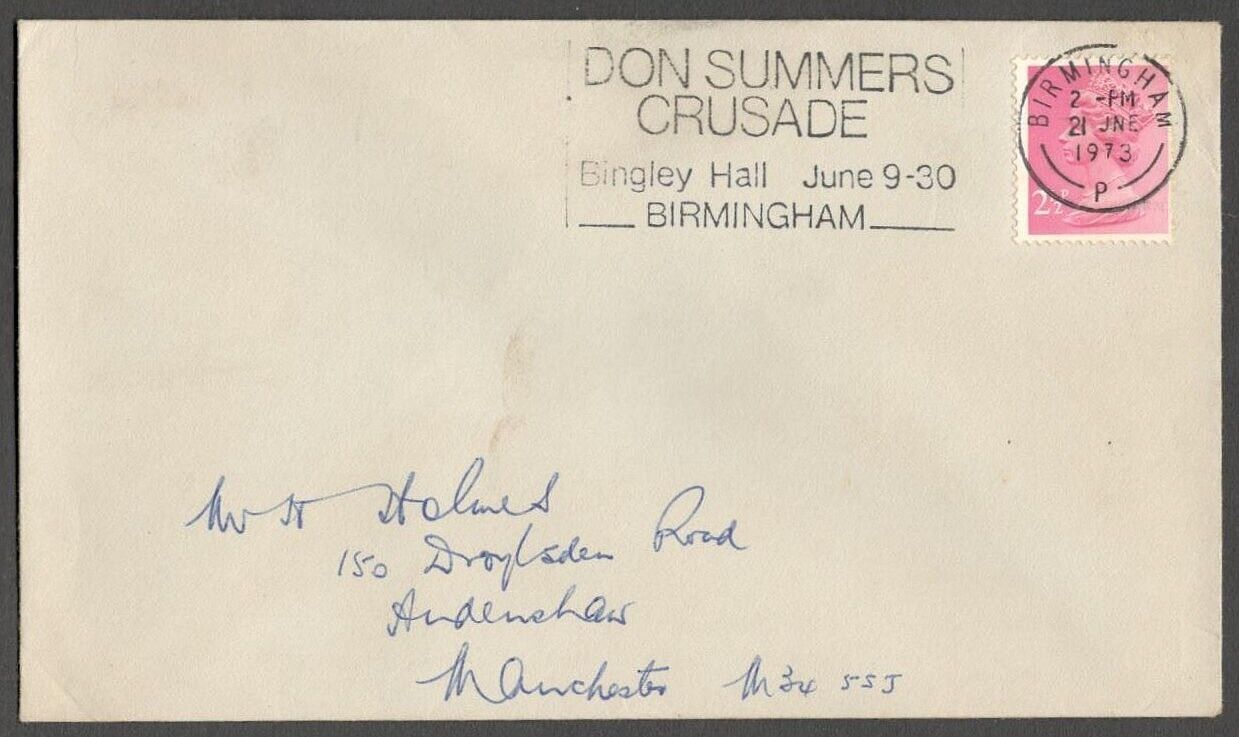 DON SUMMERS
CRUSADE
Bingley Hall June 9-30
BIRMINGHAM
BIRMINGHAM
2 -PM
21 JNE
1973
P
2½P
Mr H Holmes
150 Droylsden Road
Audenshaw
Manchester M34 5SJ